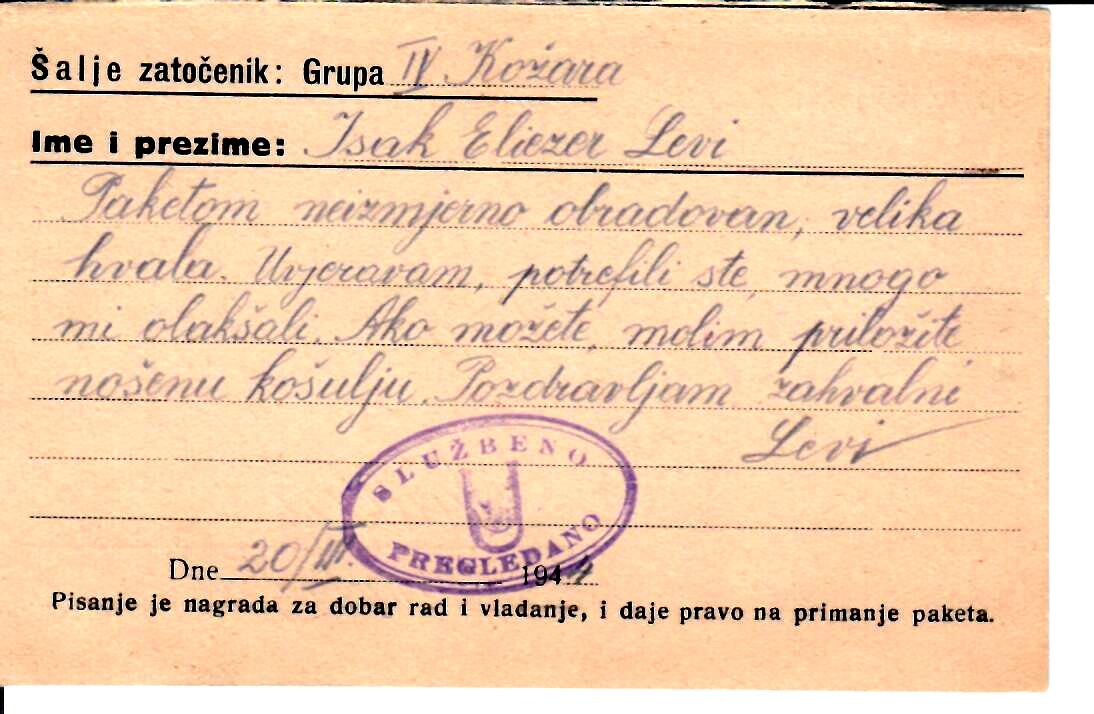 Šalje zatočenik: Grupa IV Kožara
Ime i prezime: Isak Eliezer Levi
Paketom neizmjerno obradovan, velika
hvala. Uvjeravam, potrefili ste, mnogo
mi olakšali. Ako možete, molim priložite
nošenu košulju. Pozdravljam zahvalni
Levi
SLUŽBENO
U
PREGLEDANO
Dne 20/III. 1944
Pisanje je nagrada za dobar rad i vladanje, i daje pravo na primanje paketa.